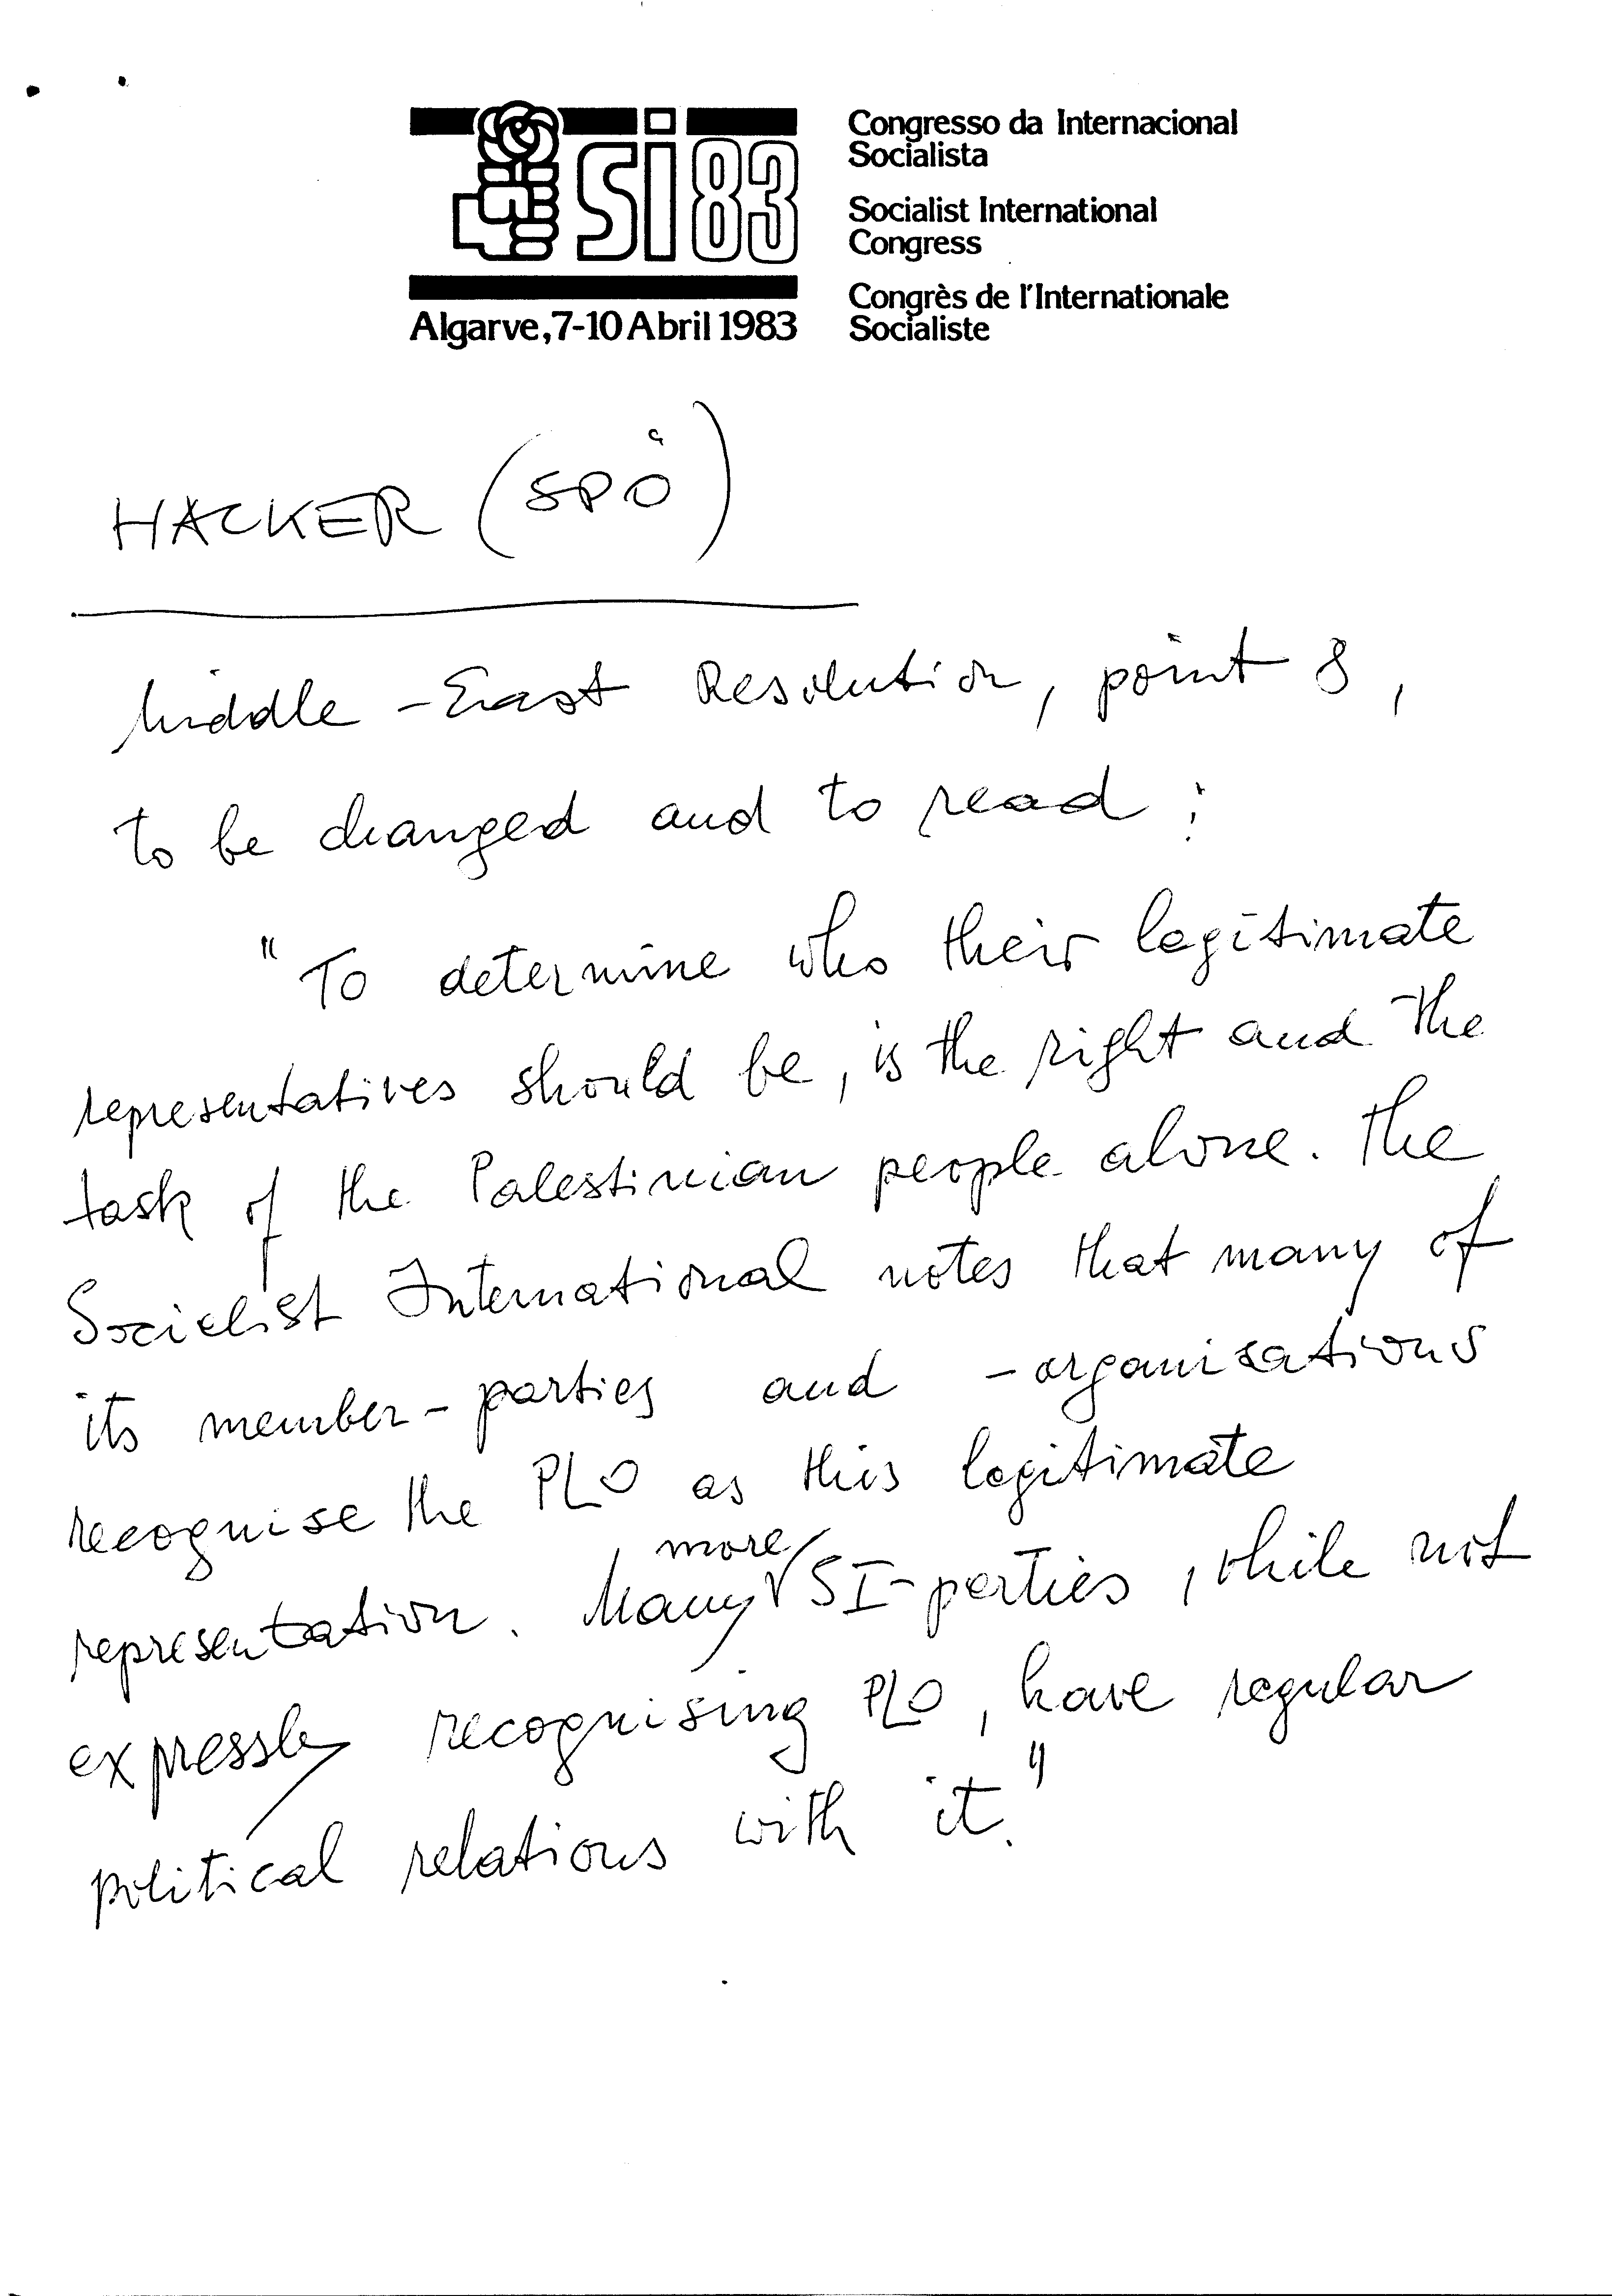 si 83
Algarve, 7-10 Abril 1983
Congresso da Internacional
Socialista
Socialist International
Congress
Congrès de l'Internationale
Socialiste
HACKER (SPÖ)
Middle-East Resolution, point 8,
to be changed and to read:
"To determine who their legitimate
representatives should be, is the right and the
task of the Palestinian people alone. The
Socialist International notes that many of
its member-parties and -organisations
recognise the PLO as this legitimate
representation. Many more SI-parties, while not
expressly recognising PLO, have regular
political relations with it."